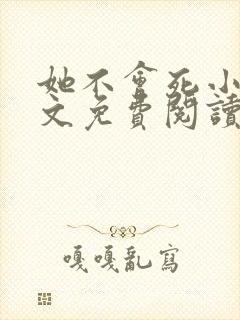 她不會死小
文免費閱讀
嘎嘎亂寫